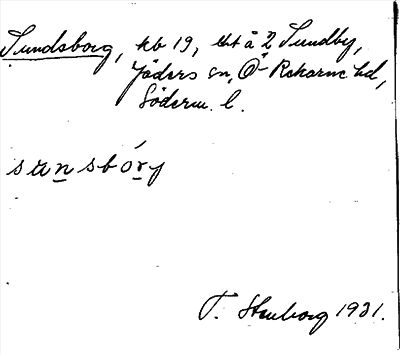 Sundsborg, kb 19, lht å 2 Sundby,
Jäders sn, Ö-Rekarne hd,
Söderm. l.
sunsbórj
T. Stenborg 1931.